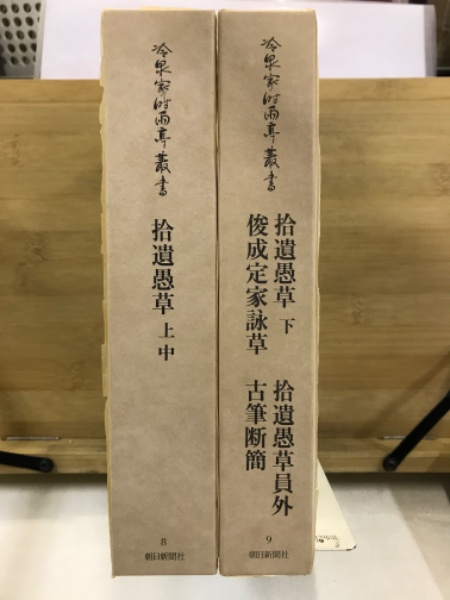 冷泉家時雨亭叢書
拾遺愚草 上中
8
朝日新聞社
冷泉家時雨亭叢書
拾遺愚草 下 拾遺愚草員外
俊成定家詠草 古筆断簡
9
朝日新聞社